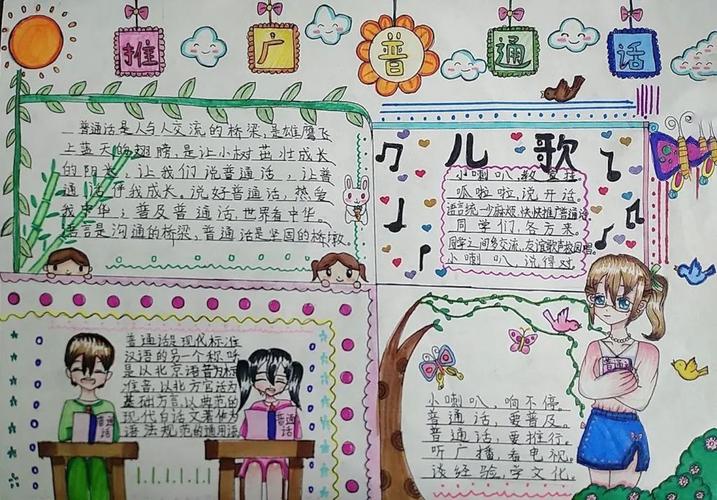 推广普通话
普通话是人与人交流的桥梁,是雄鹰飞
上蓝天的翅膀,是让小树茁壮成长
的阳光,让我们说普通话,让普
通话伴我成长。说好普通话,热爱
我中华;普及普通话,世界看中华。
语言是沟通的桥梁,普通话是坚固的桥墩。
儿歌
小喇叭
呱啦啦,说开话。
语言统一少麻烦,快快推广普通话
同学们,各方来。
同学之间多交流,友谊歌声校园
小喇叭,说得对。
普通话是现代标准
汉语的另一个称呼
是以北京语音为标
准音,以北方官话为
基础方言,以典范的
现代白话文著作为
语法规范的通用语
普通话
普通话
普通话
小喇叭,响不停。
普通话,要普及。
普通话,要推行。
听广播,看电视。
谈经验,学文化。